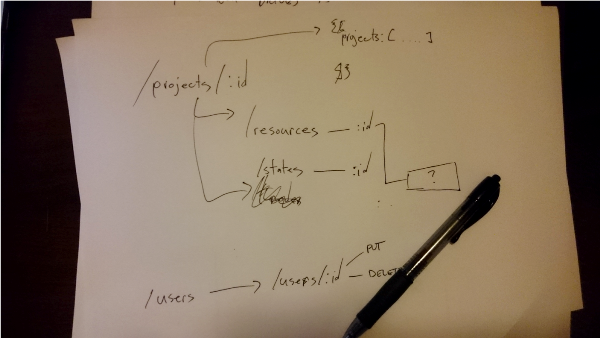 {{
projects: [ .... ]
}}
/projects/:id
/resources — :id
/states — :id
?
PUT
/users → /users/:id
DELET